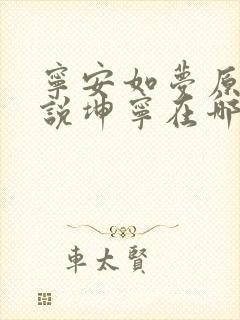 寧安如夢原
說坤寧在哪
車太賢